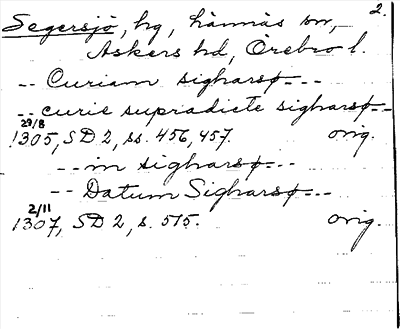 2.
Segersjö, hg, Lännäs sn,
Askers hd, Örebro l.
-- Curiam sigharsø---
-- curie supradicte sigharsø--
29/8
1305, SD 2, ss. 456, 457. orig.
-- in sigharsø---
-- Datum Sigharsø---
2/11
1307, SD 2, s. 515. orig.